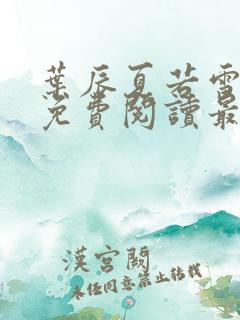 葉辰夏若雪
免費閱讀最
漢宮闕
未經同意禁止轉載